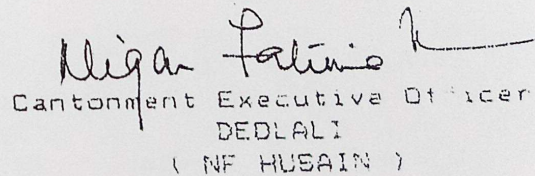 Nigar Fatima
Cantonment Executive Officer
DEOLALI
( NF HUSAIN )